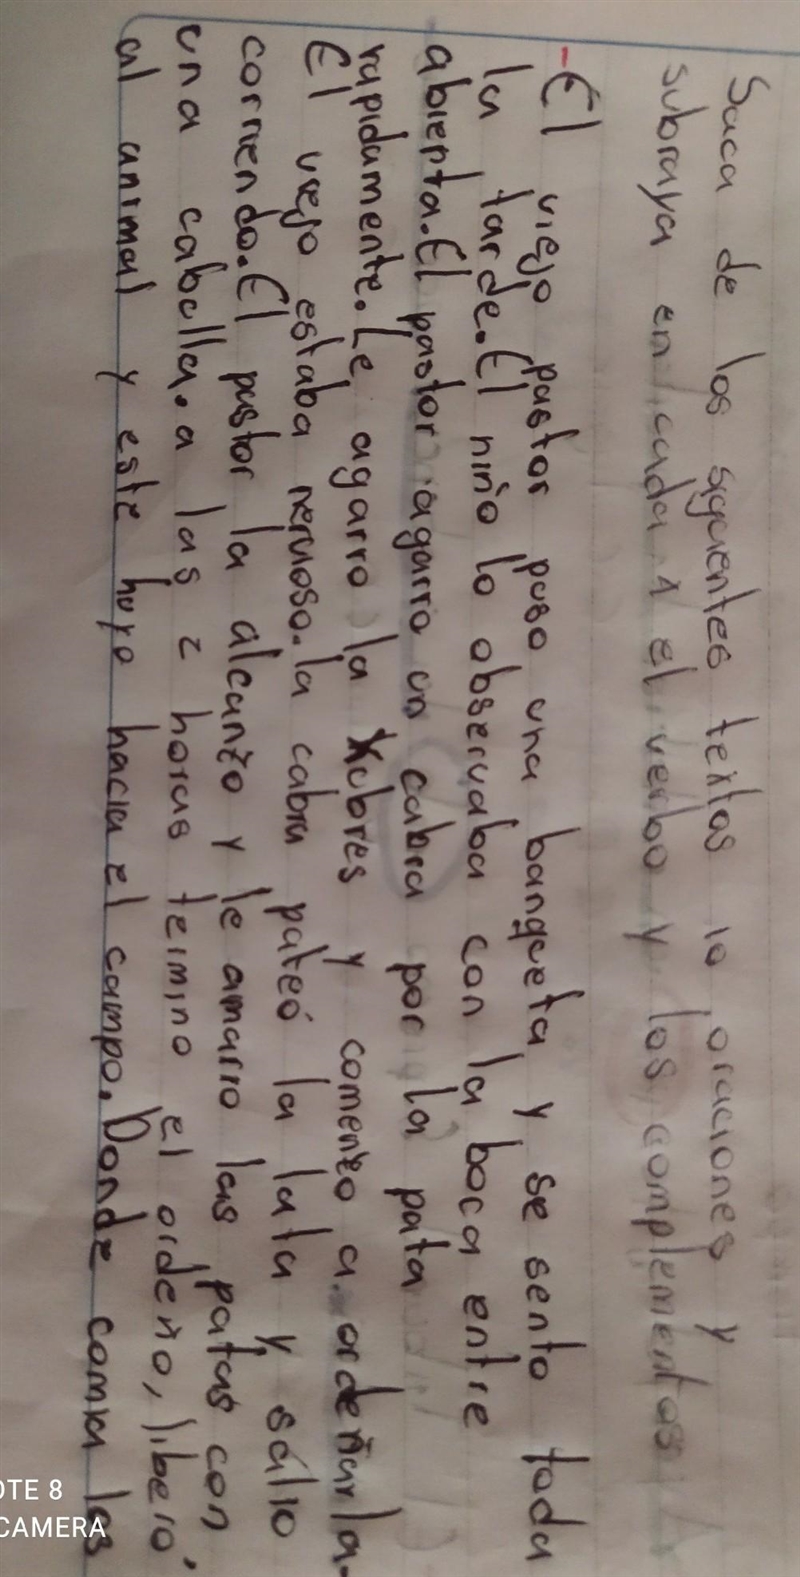 Saca de los siguientes textos 10 oraciones y
subraya en cada 1 el verbo y los complementos
-El viejo pastor puso una banqueta y se sento toda
la tarde. El niño lo observaba con la boca entre
abienta. El pastor agarro un cabra por la pata
rapidamente. Le agarro la xubres y comenzo a ordeñarla.
El viejo estaba nervioso. la cabra pateó la lata y salio
corriendo. El pastor la alcanzo y le amarro las patas con
una cabulla. a las 2 horas termino el ordeño, libero
al animal y este huyo hacia el campo. Donde comia las
OTE 8
CAMERA